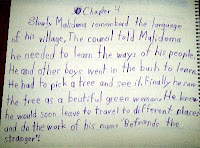 Chapter 4
Slowly Malidoma remembered the language
of his village. The council told Malidoma
he needed to learn the ways of his people.
He and other boys went in the bush to learn.
He had to pick a tree and see it. Finally he saw
the tree as a beutiful green woman. He knew
he would soon leave to travel to different places
and do the work of his name "Befriends the
stranger".